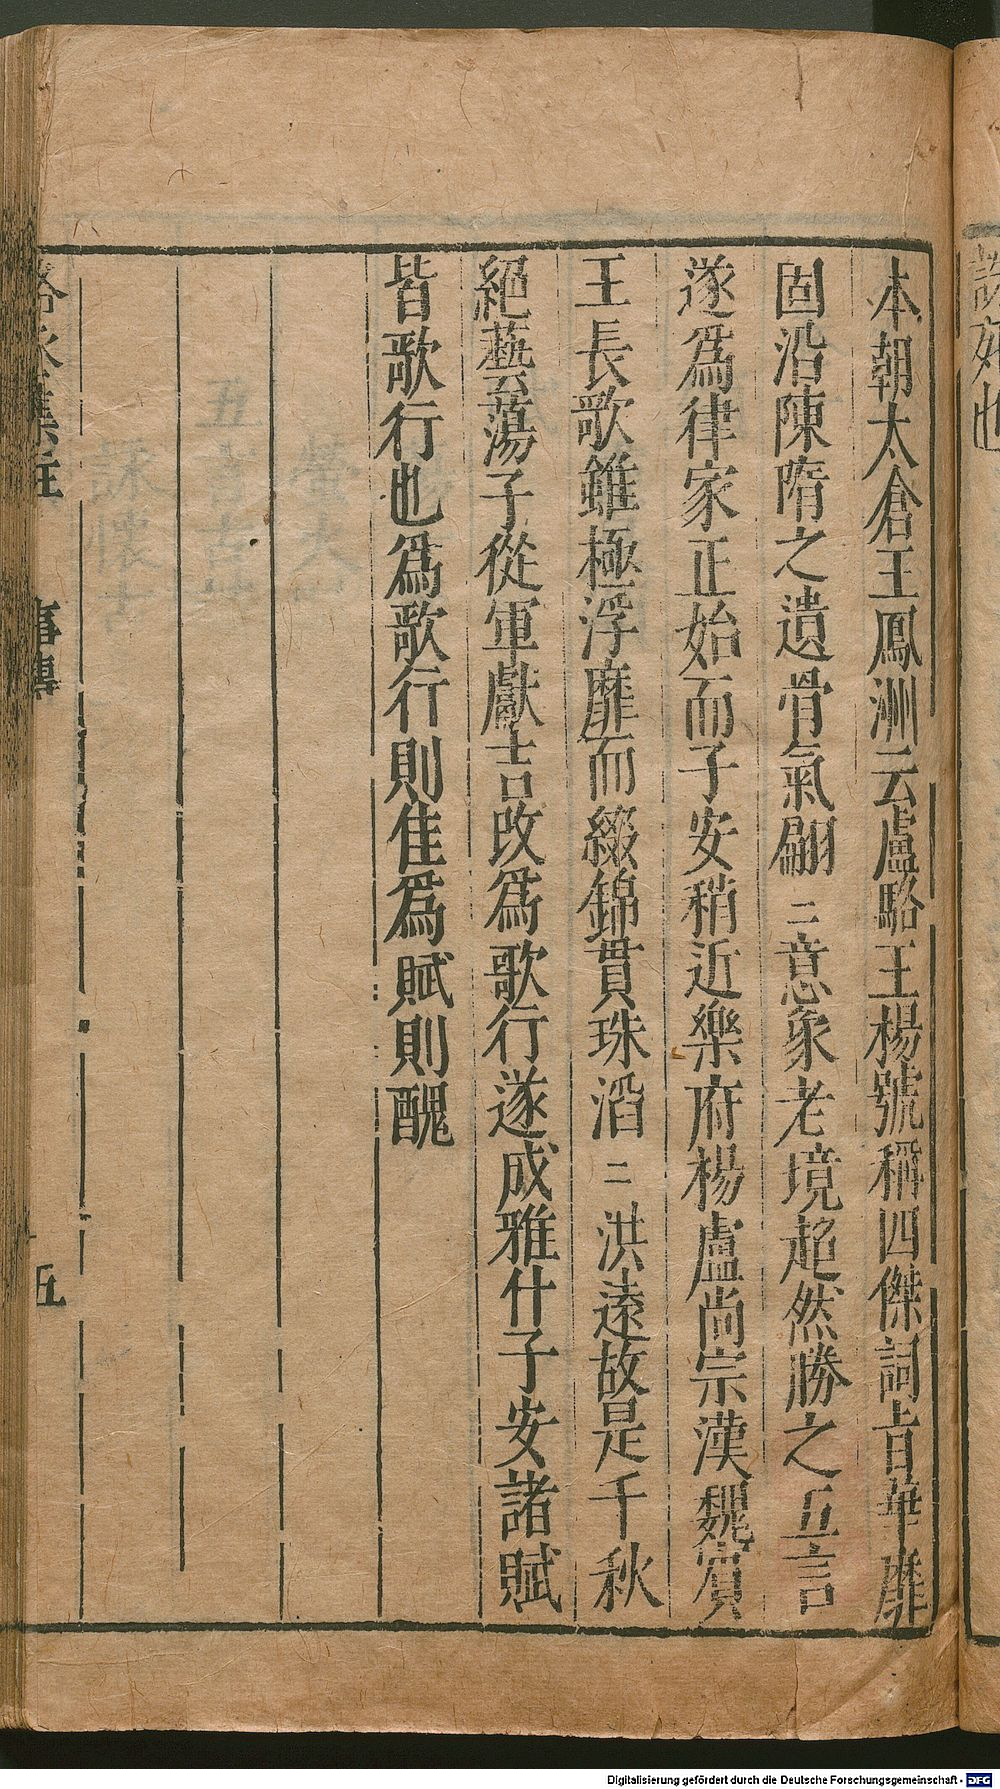 本朝太倉王鳳洲云盧駱王楊號稱四傑詞旨華靡
固沿陳隋之遺骨氣翩二意象老境超然勝之五言
遂為律家正始而子安稍近樂府楊盧尚宗漢魏賓
王長歌雖極浮靡而綴錦貫珠滔二洪遠故是千秋
絕藝蕩子從軍獻吉改為歌行遂成雅什子安諸賦
皆歌行也為歌行則佳為賦則醜
五
Digitalisierung gefördert durch die Deutsche Forschungsgemeinschaft - DFG